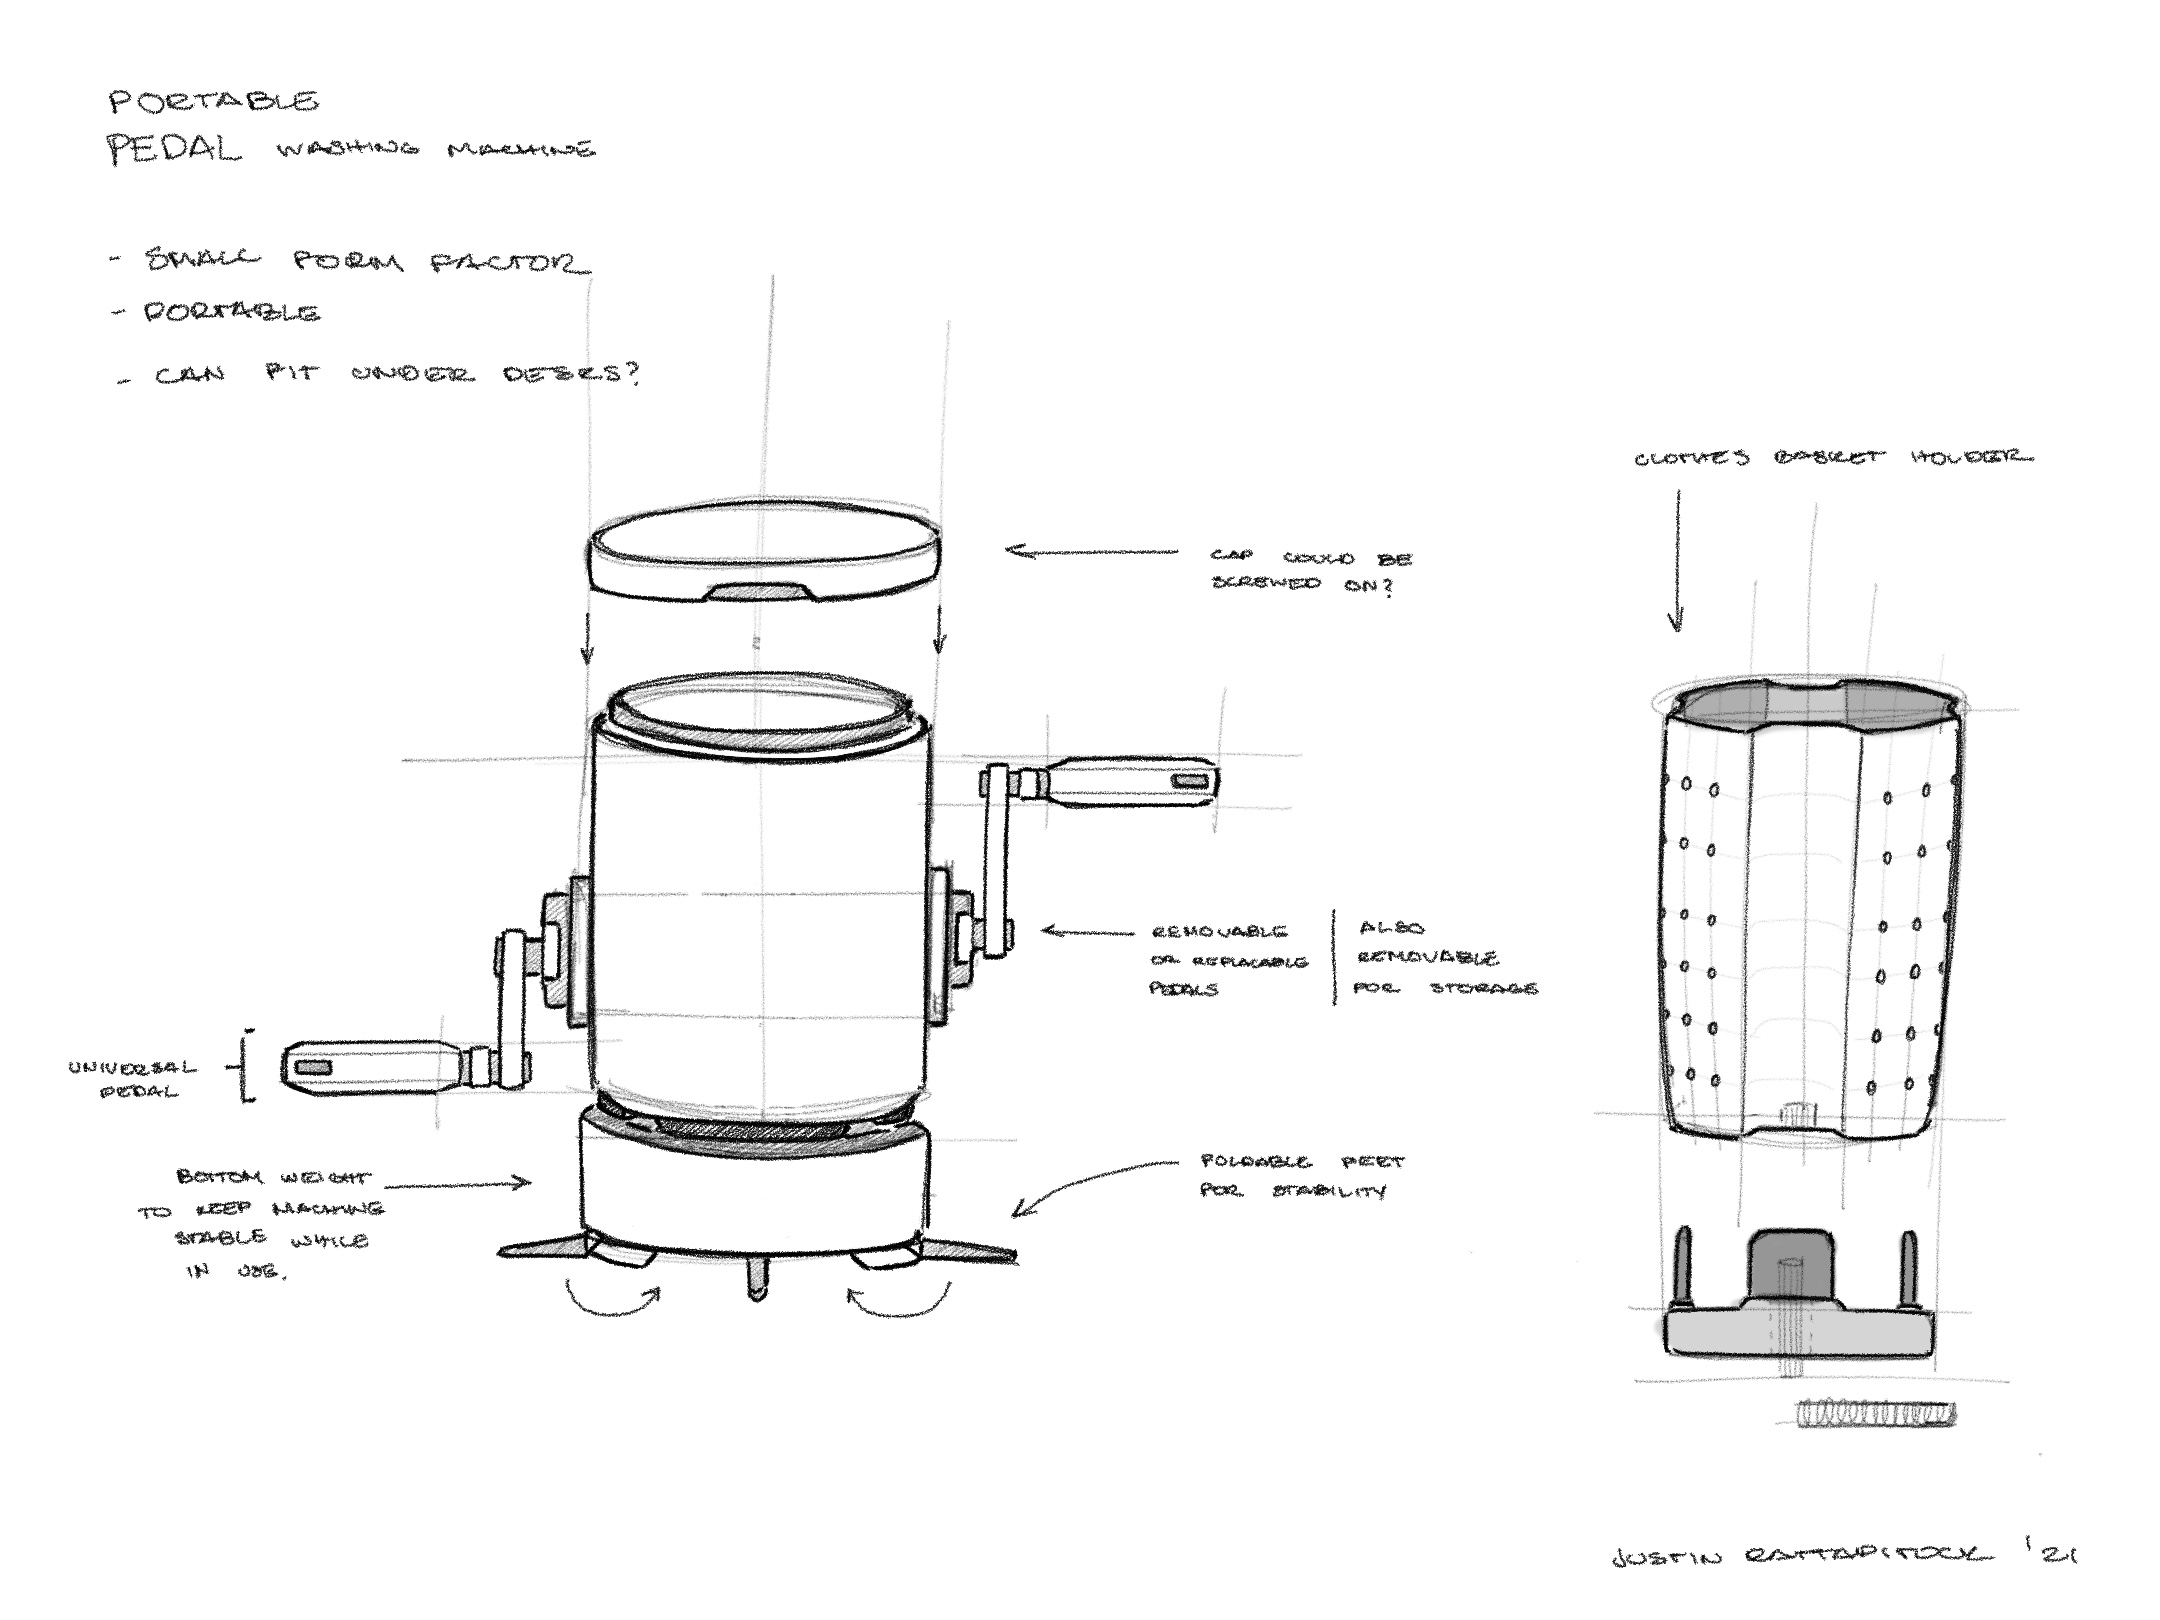 PORTABLE
PEDAL WASHING MACHINE
- SMALL FORM FACTOR
- PORTABLE
- CAN FIT UNDER DESKS?
CLOTHES BASKET HOLDER
CAP COULD BE
SCREWED ON?
REMOVABLE
OR REPLACABLE
PEDALS
ALSO
REMOVABLE
FOR STORAGE
UNIVERSAL
PEDAL
BOTTOM WEIGHT
TO KEEP MACHINE
STABLE WHILE
IN USE.
FOLDABLE FEET
FOR STABILITY
JUSTIN RATTAPITOCK '21